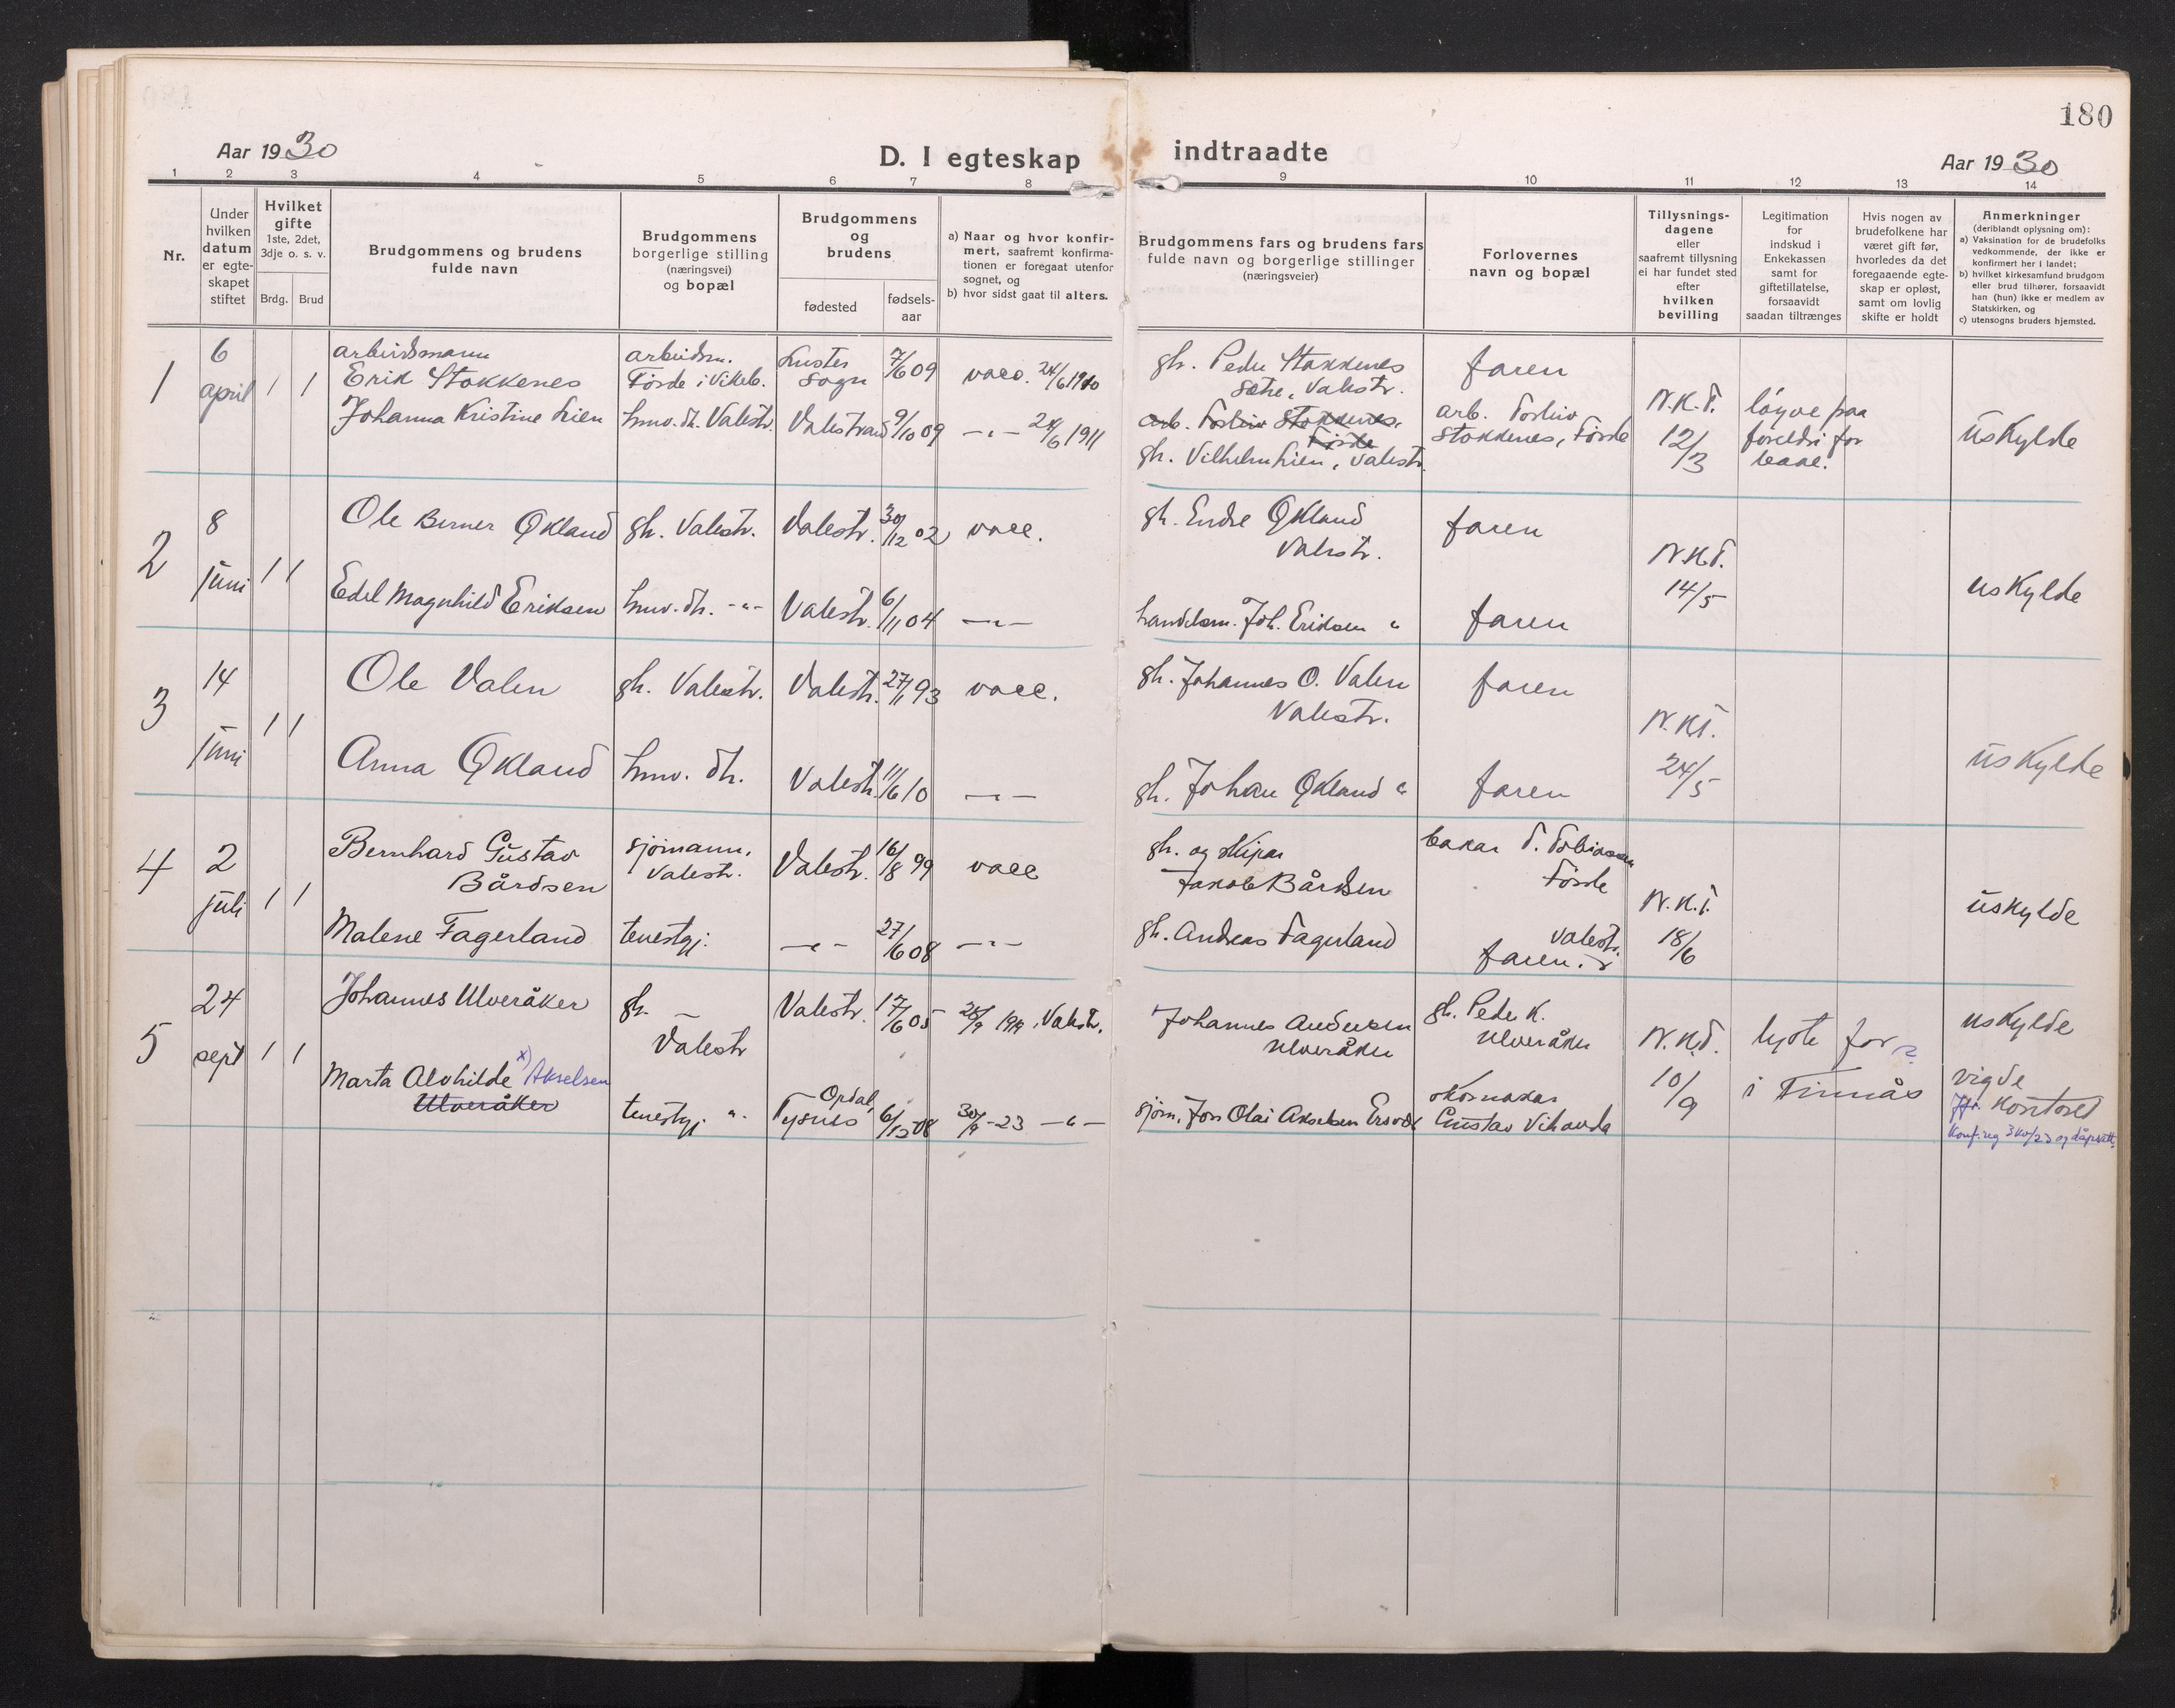 180
Aar 1930
D. I egteskap indtraadte
Aar 1930
1 2 3 4 5 6 7 8 9 10 11 12 13 14
Nr.
Under hvilken datum er egteskapet stiftet
Hvilket gifte
1ste, 2det, 3dje o. s. v.
Brdg. Brud
Brudgommens og brudens fulde navn
Brudgommens borgerlige stilling (næringsvei) og bopæl
Brudgommens og brudens
fødested
fødsels-aar
a) Naar og hvor konfirmert, saafremt konfirmationen er foregaat utenfor sognet, og
b) hvor sidst gaat til alters.
Brudgommens fars og brudens fars fulde navn og borgerlige stillinger (næringsveier)
Forlovernes navn og bopæl
Tillysningsdagene eller saafremt tillysning ei har fundet sted efter hvilken bevilling
Legitimation for indskud i Enkekassen samt for giftetillatelse, forsaavidt saadan tiltrænges
Hvis nogen av brudefolkene har været gift før, hvorledes da det foregaaende egteskap er opløst, samt om lovlig skifte er holdt
Anmerkninger (deriblandt oplysning om):
a) Vaksination for de brudefolks vedkommende, der ikke er konfirmert her i landet;
b) hvilket kirkesamfund brudgom eller brud tilhører, forsaavidt han (hun) ikke er medlem av Statskirken, og
c) utensogns bruders hjemsted.
1 6 april 1 1
arbeidsmann Erik Stokkenes
arbeidsm. Førde i Vikeb.
Luster Sogn 7/6 09
vacc. 24/6 1910
gh. Peder Stokkenes Sætre, Valestr.
faren
Johanna Kristine Lien
hmv. dt. Valestr.
Valestrand 9/10 09
-"- 24/6 1911
arb. Torleiv Stokkenes, Førde
gh. Vilhelm Lien, Valestr.
arb. Torleiv Stokkenes, Førde
N.K.T. 12/3
løyve paa foreldri for
uskylde
2 8 juni 1 1
Ole Berner Økland
gh. Valestr.
Valestr. 30/12 02
vacc.
gh. Endre Økland Valestr.
faren
Edel Magnhild Eriksen
hmv. dt. -"-
Valestr. 6/11 04
-"-
handelsm. Joh. Eriksen "
faren
N.K.T. 14/5
uskylde
3 14 juni 1 1
Ole Valen
gh. Valestr.
Valestr. 27/11 93
vacc.
gh. Johannes O. Valen Valestr.
faren
Anna Økland
hmv. dt.
Valestr. 11/6 10
-"-
gh. Johan Økland "
faren
N.K.T. 24/5
uskylde
4 2 juli 1 1
Bernhard Gustav Bårdsen
sjømann, Valestr.
Valestr. 16/8 99
vacc
gh. og skipar Jakob Bårdsen
bakar T. Tobiassen Førde
Malene Fagerland
tenestgj.
-"- 27/6 08
-"-
gh. Andreas Fagerland
Valestr. faren.
N.K.T. 18/6
uskylde
5 24 sept 1 1
Johannes Ulveråker
gh. Valestr
Valestr. 17/6 05
28/9 1919 i Valestr.
Johannes Andersen Ulveråker
gh. Peder K. Ulveråker
Marta Alvhilde x) Akselsen
Ulveråker
tenestgj. "
Opdal, Tysnes 6/12 08
30/9 - 23 -"-
sjøm. Jon Olai Akselsen
skomakar Gustav Vihovda
N.K.T. 10/9
lyste for
i Finnås
uskylde
vigde
kontoret